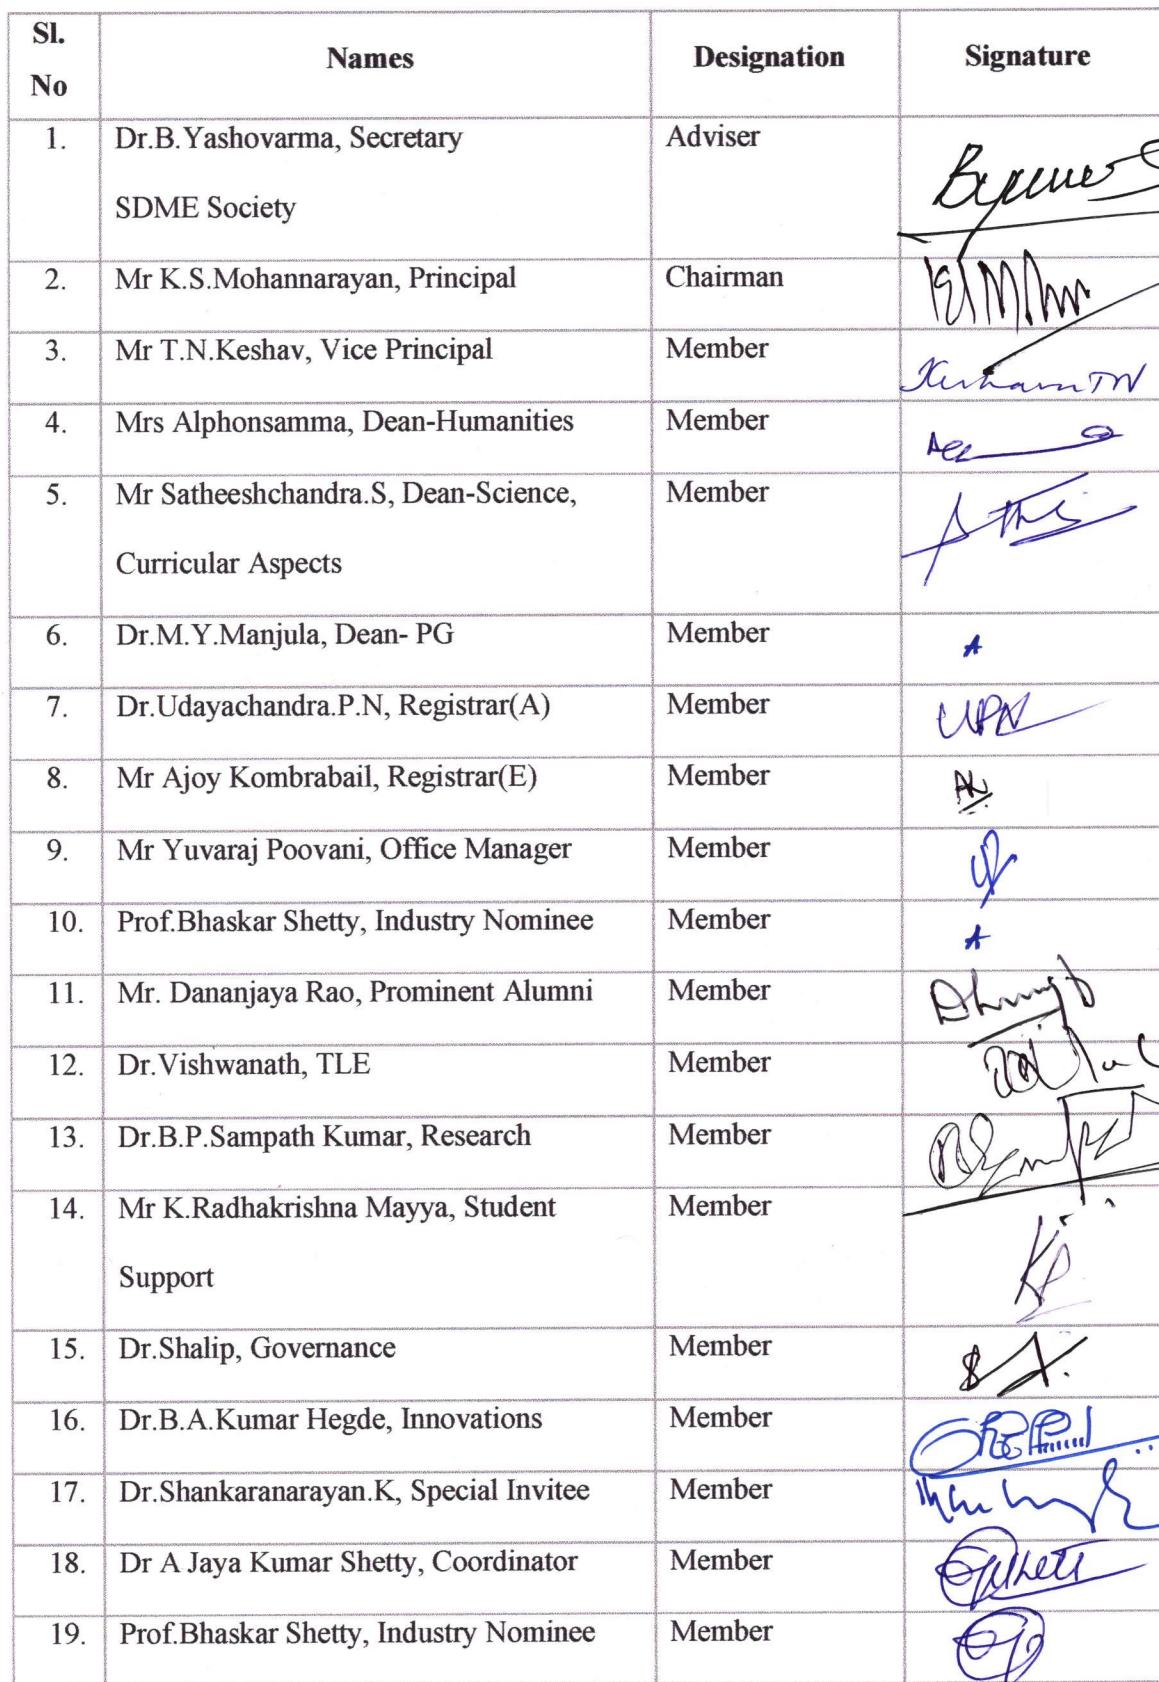 Sl. No Names Designation Signature
1. Dr.B.Yashovarma, Secretary Adviser
SDME Society
2. Mr K.S.Mohannarayan, Principal Chairman
3. Mr T.N.Keshav, Vice Principal Member Keshava TN
4. Mrs Alphonsamma, Dean-Humanities Member
5. Mr Satheeshchandra.S, Dean-Science, Member
Curricular Aspects
6. Dr.M.Y.Manjula, Dean- PG Member A
7. Dr.Udayachandra.P.N, Registrar(A) Member UPN
8. Mr Ajoy Kombrabail, Registrar(E) Member
9. Mr Yuvaraj Poovani, Office Manager Member
10. Prof.Bhaskar Shetty, Industry Nominee Member A
11. Mr. Dananjaya Rao, Prominent Alumni Member
12. Dr.Vishwanath, TLE Member
13. Dr.B.P.Sampath Kumar, Research Member
14. Mr K.Radhakrishna Mayya, Student Member
Support
15. Dr.Shalip, Governance Member
16. Dr.B.A.Kumar Hegde, Innovations Member
17. Dr.Shankaranarayan.K, Special Invitee Member
18. Dr A Jaya Kumar Shetty, Coordinator Member
19. Prof.Bhaskar Shetty, Industry Nominee Member